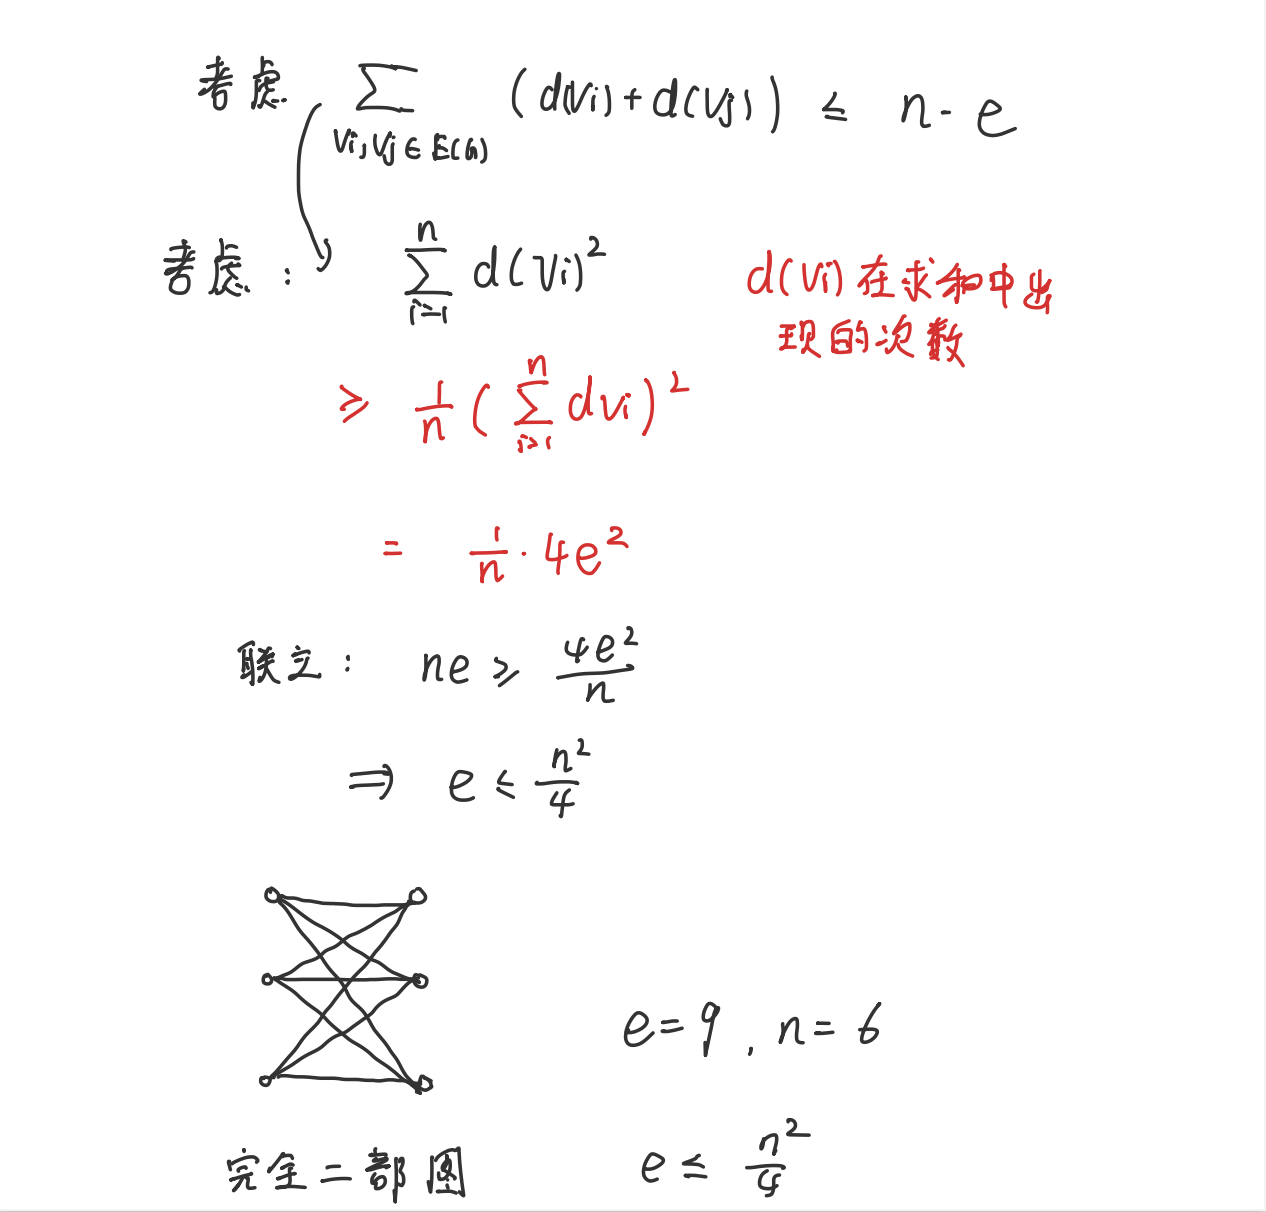 考虑 ∑ (d(Vi) + d(Vj)) ≤ n · e
Vi,Vj ∈ E(G)
考虑: ∑ᵢ₌₁ⁿ d(Vi)²
d(Vi) 在求和中出
现的次数
≥ 1/n (∑ᵢ₌₁ⁿ dvi)²
= 1/n · 4e²
联立: ne ≥ 4e²/n
⇒ e ≤ n²/4
e=9, n=6
完全二部图
e ≤ n²/4